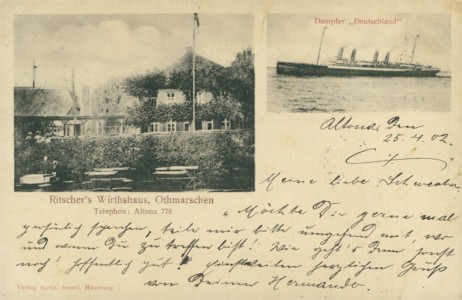 Dampfer „Deutschland"
Altona den
25.4.02.
Ritscher's Wirthshaus, Othmarschen
Telephon: Altona 778
Meine liebe Schwester
Möchte Dir gerne mal
sprechen, teile mir bitte umgehend mit, wo
und wann Du zu treffen bist! Wie geht's Dir sonst
noch? hoffentlich gut! Einstweilen herzlichen Gruss
von Deinem Hermando.
Verlag Gebr. Israel, Hamburg